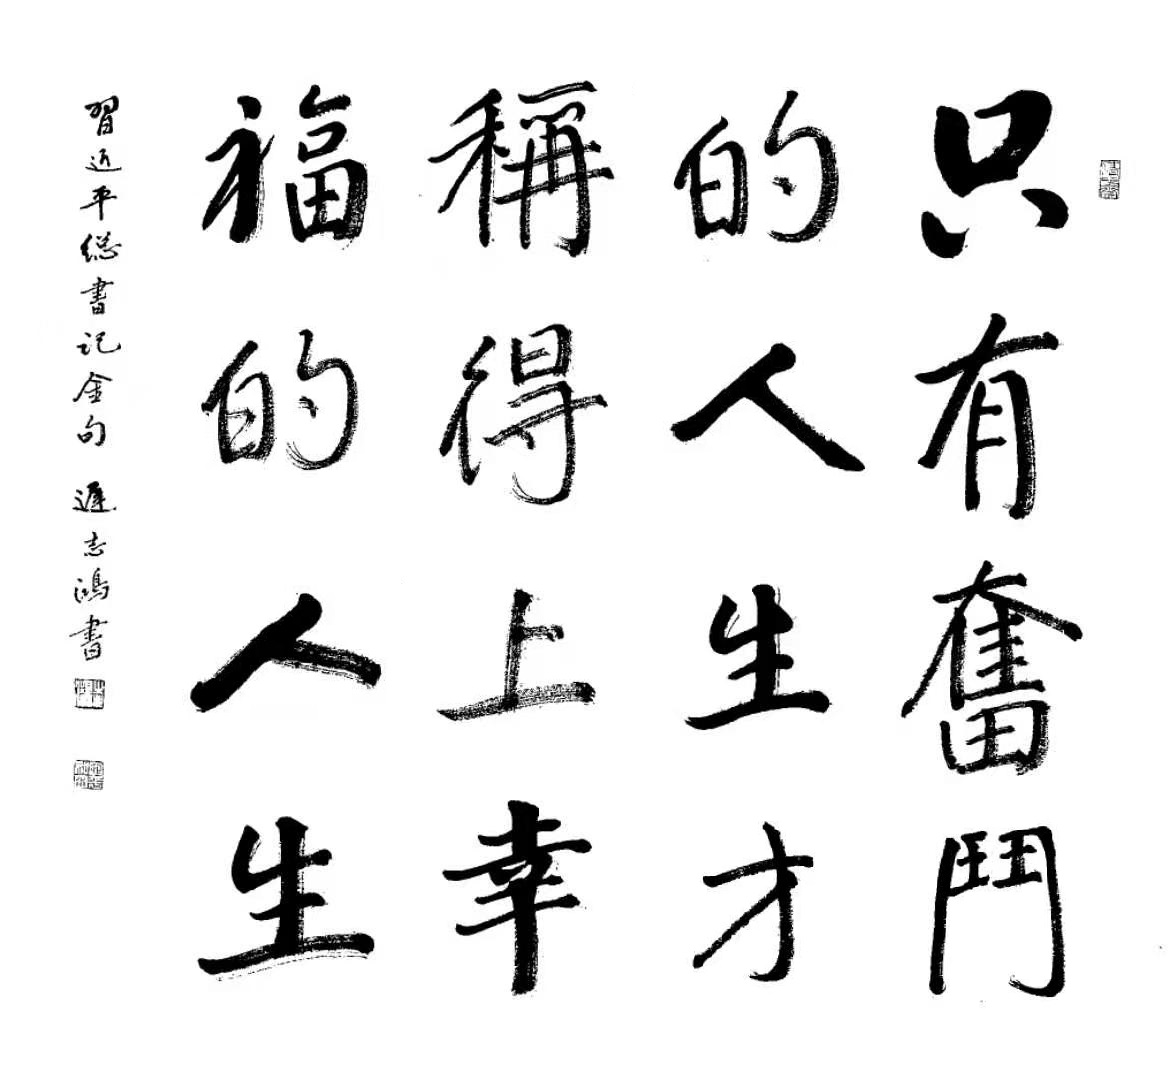 只有奮鬥
的人生才
稱得上幸
福的人生
習近平總書記金句 遲志鴻書